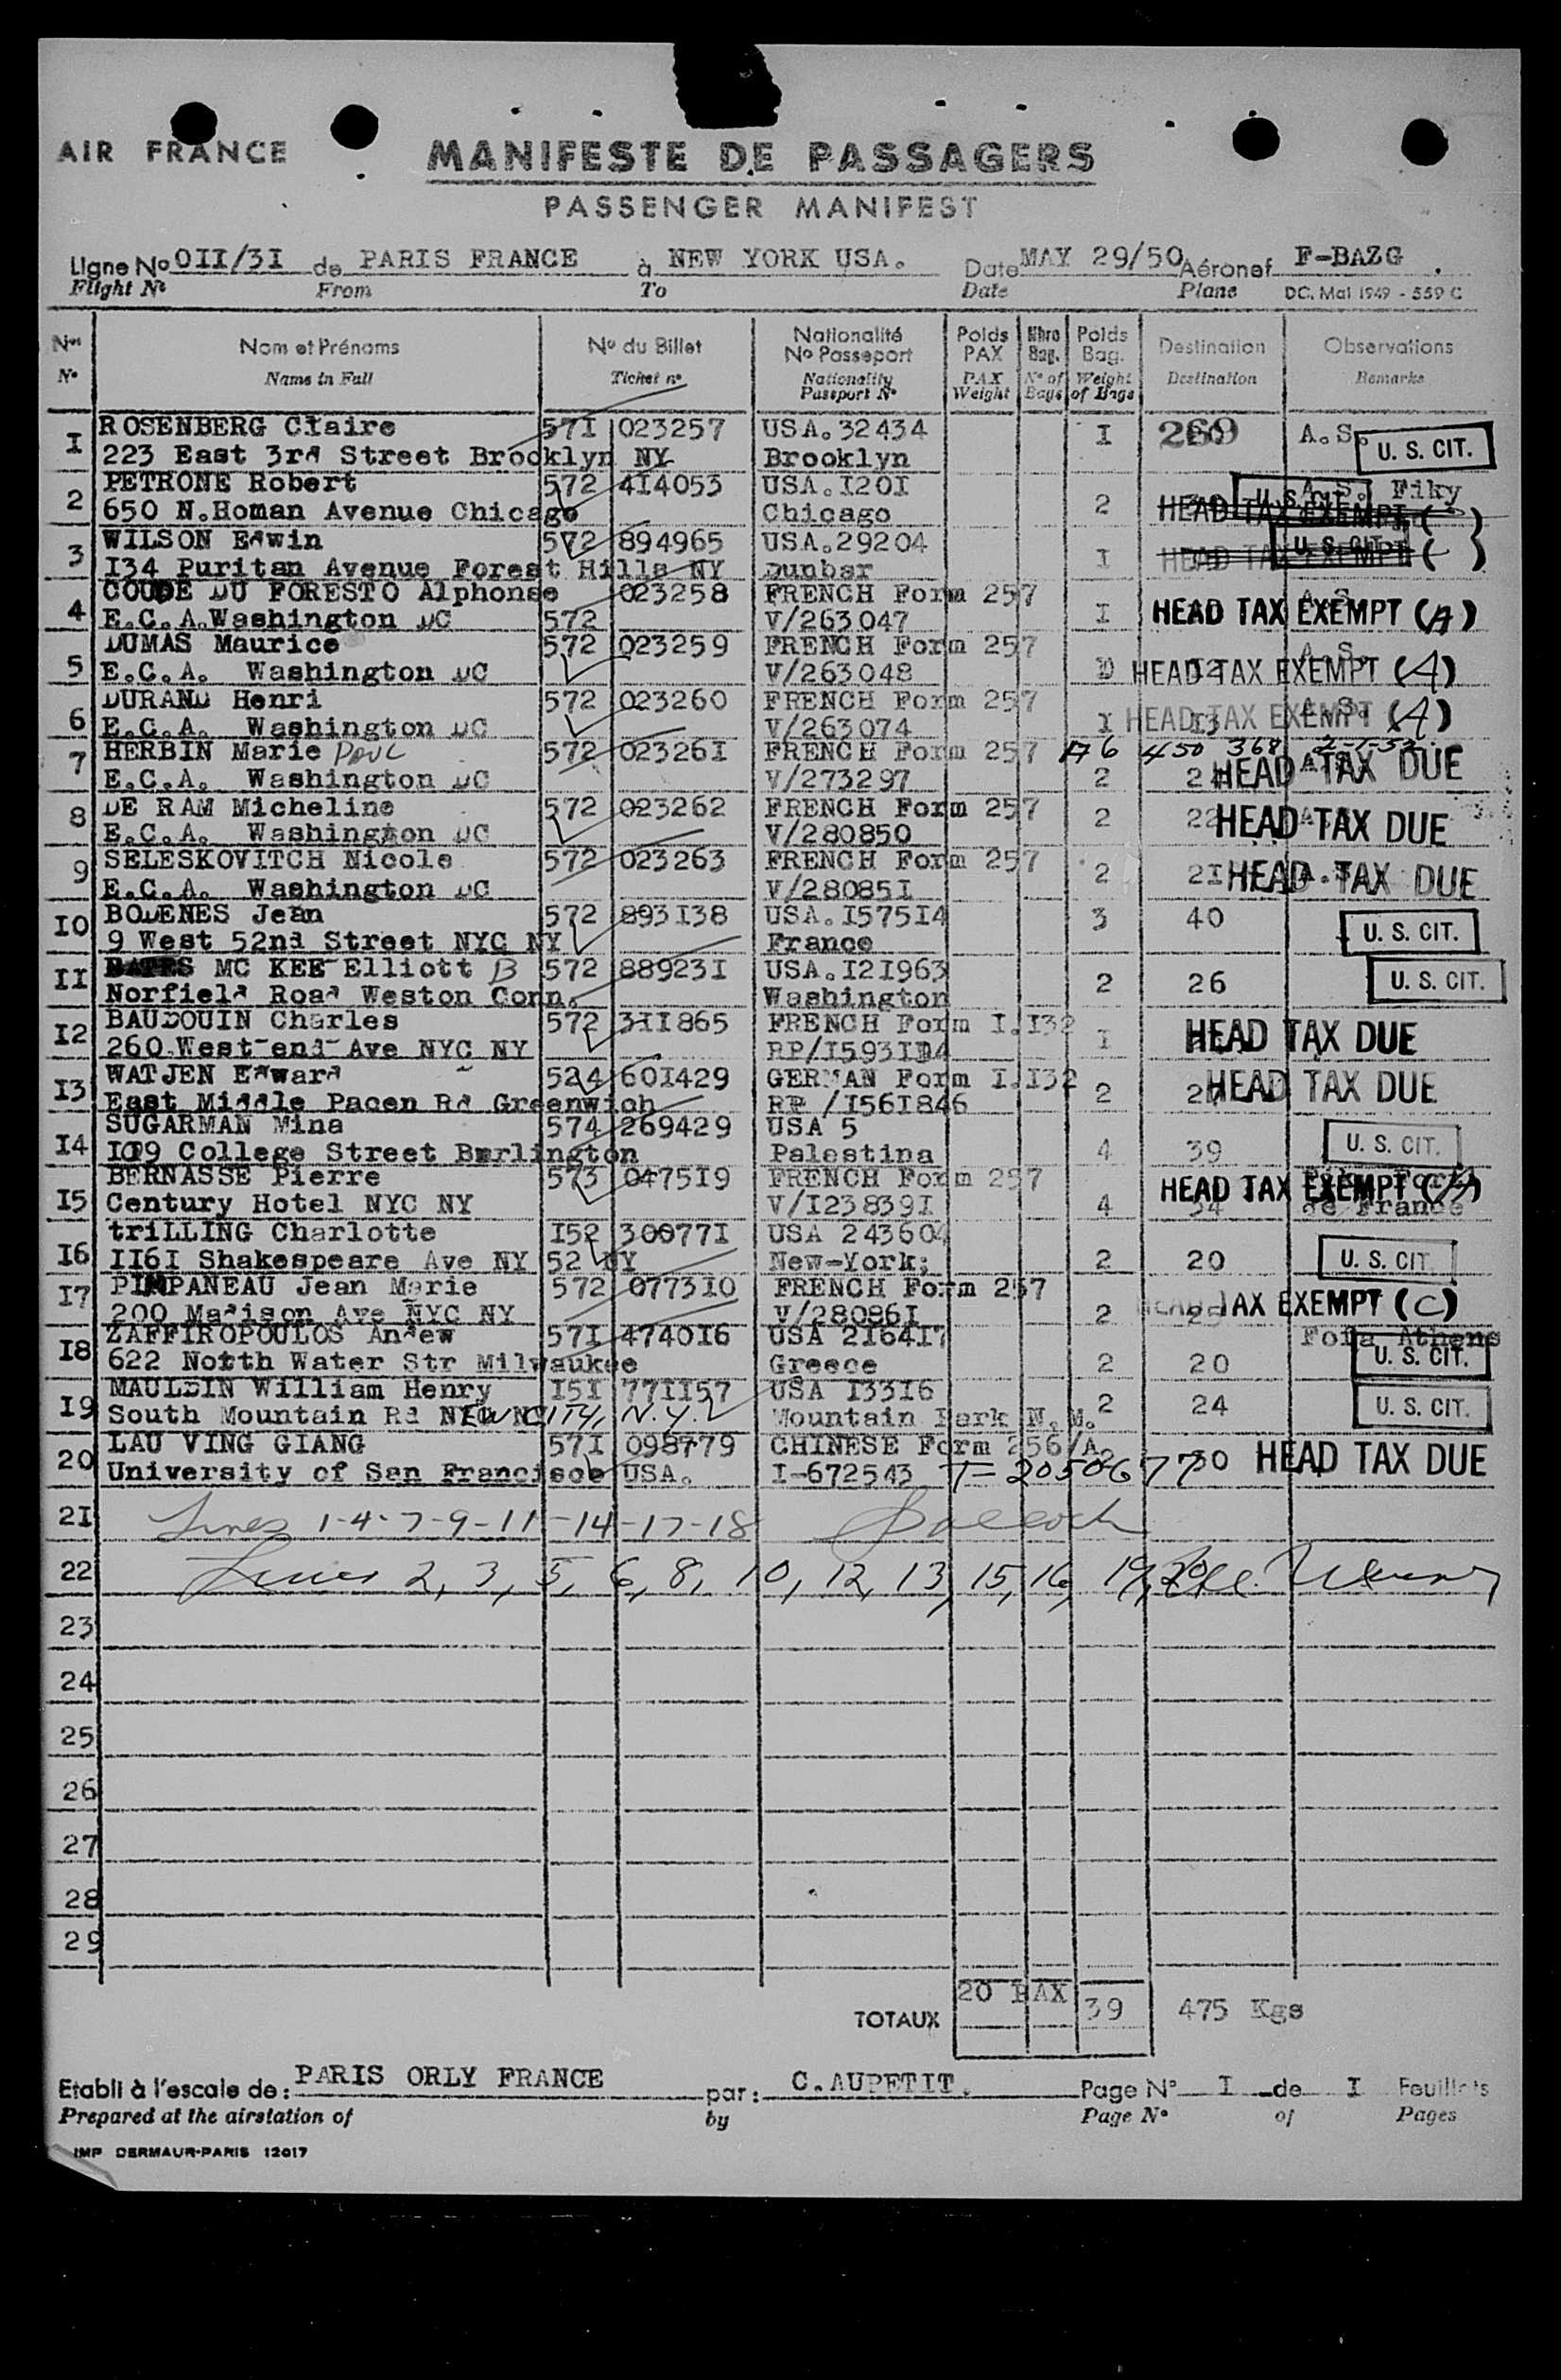 AIR FRANCE
MANIFESTE DE PASSAGERS
PASSENGER MANIFEST
Ligne No OII/3I de PARIS FRANCE à NEW YORK USA. Date MAY 29/50 Aéronef F-BAZG .
Flight No From To Date Plane DC. Mai 1949 - 559 C
Nos Nom et Prénoms No du Billet Nationalité No Passeport Poids PAX Nbre Bag. Poids Bag. Destination Observations
No Name in Full Ticket no Nationality Passport No PAX Weight No of Bags Weight of Bags Destination Remarks
I ROSENBERG Claire 57I 023257 USA.32434 I 269 A.S. U. S. CIT.
223 East 3rd Street Brooklyn NY Brooklyn
2 PETRONE Robert 572 4I4053 USA.I20I 2 A.S. Fiky U. S. CIT.
650 N.Homan Avenue Chicago Chicago HEAD TAX EXEMPT ( )
3 WILSON Edwin 572 894965 USA.29204 I U. S. CIT.
I34 Puritan Avenue Forest Hills NY Dunbar HEAD TAX EXEMPT ( )
4 COUDE DU FORESTO Alphonse 023258 FRENCH Form 257 I HEAD TAX EXEMPT (A)
E.C.A.Washington DC 572 V/263047
5 DUMAS Maurice 572 023259 FRENCH Form 257 A.S.
E.C.A. Washington DC V/263048 12 HEAD TAX EXEMPT (A)
6 DURAND Henri 572 023260 FRENCH Form 257 A.S.
E.C.A. Washington DC V/263074 I 13 HEAD TAX EXEMPT (A)
7 HERBIN Marie Paul 572 02326I FRENCH Form 257 A6 450 368 2-1-52
E.C.A. Washington DC V/273297 2 HEAD TAX DUE
8 DE RAM Micheline 572 023262 FRENCH Form 257 2 22 HEAD TAX DUE
E.C.A. Washington DC V/280850
9 SELESKOVITCH Nicole 572 023263 FRENCH Form 257 2 2I HEAD TAX DUE
E.C.A. Washington DC V/28085I
IO BODENES Jean 572 893I38 USA.I575I4 3 40 U. S. CIT.
9 West 52nd Street NYC NY France
II BATES MC KEE Elliott B 572 88923I USA.I2I963 2 26 U. S. CIT.
Norfield Road Weston Conn. Washington
I2 BAUDOUIN Charles 572 3II865 FRENCH Form I.I32 I HEAD TAX DUE
260 West-end-Ave NYC NY
I3 WATJEN Edward 524 60I429 GERMAN Form I.I32 2 HEAD TAX DUE
East Middle Pacen Rd Greenwich RP /I56I846
I4 SUGARMAN Mina 574 269429 USA 5 4 39 U. S. CIT.
II9 College Street Burlington Palestina
I5 BERNASSE Pierre 573 0475I9 FRENCH Form 257 HEAD TAX EXEMPT (A)
Century Hotel NYC NY V/I23839I 4 34 de France
I6 trILLING Charlotte I52 30077I USA 243604 2 20 U. S. CIT.
II6I Shakespeare Ave NY 52 NY New-York;
I7 PIMPANEAU Jean Marie 572 0773IO FRENCH Form 257
200 Madison Ave NYC NY V/28086I 2 HEAD TAX EXEMPT (C)
I8 ZAFFIROPOULOS Andew 57I 4740I6 USA 2I64I7 Athens
622 North Water Str Milwaukee Greece 2 20 U. S. CIT.
I9 MAULDIN William Henry I5I 77II57 USA I33I6 2 24 U. S. CIT.
South Mountain Rd NEW CITY, N.Y. Mountain Park N.M.
20 LAU VING GIANG 57I 098779 CHINESE Form 256/A 2 30 HEAD TAX DUE
University of San Francisco USA. I-672543 T-2050677
2I Lines 1-4-7-9-11-14-17-18
22 Lines 2, 3, 5, 6, 8, 10, 12, 13, 15, 16, 19, 20
23
24
25
26
27
28
29
20 PAX
TOTAUX 39 475 Kgs
Etabli à l'escale de: PARIS ORLY FRANCE par: C.AUPETIT. Page No I de I Feuillets
Prepared at the airstation of by Page No of Pages
IMP DERMAUR-PARIS 12017